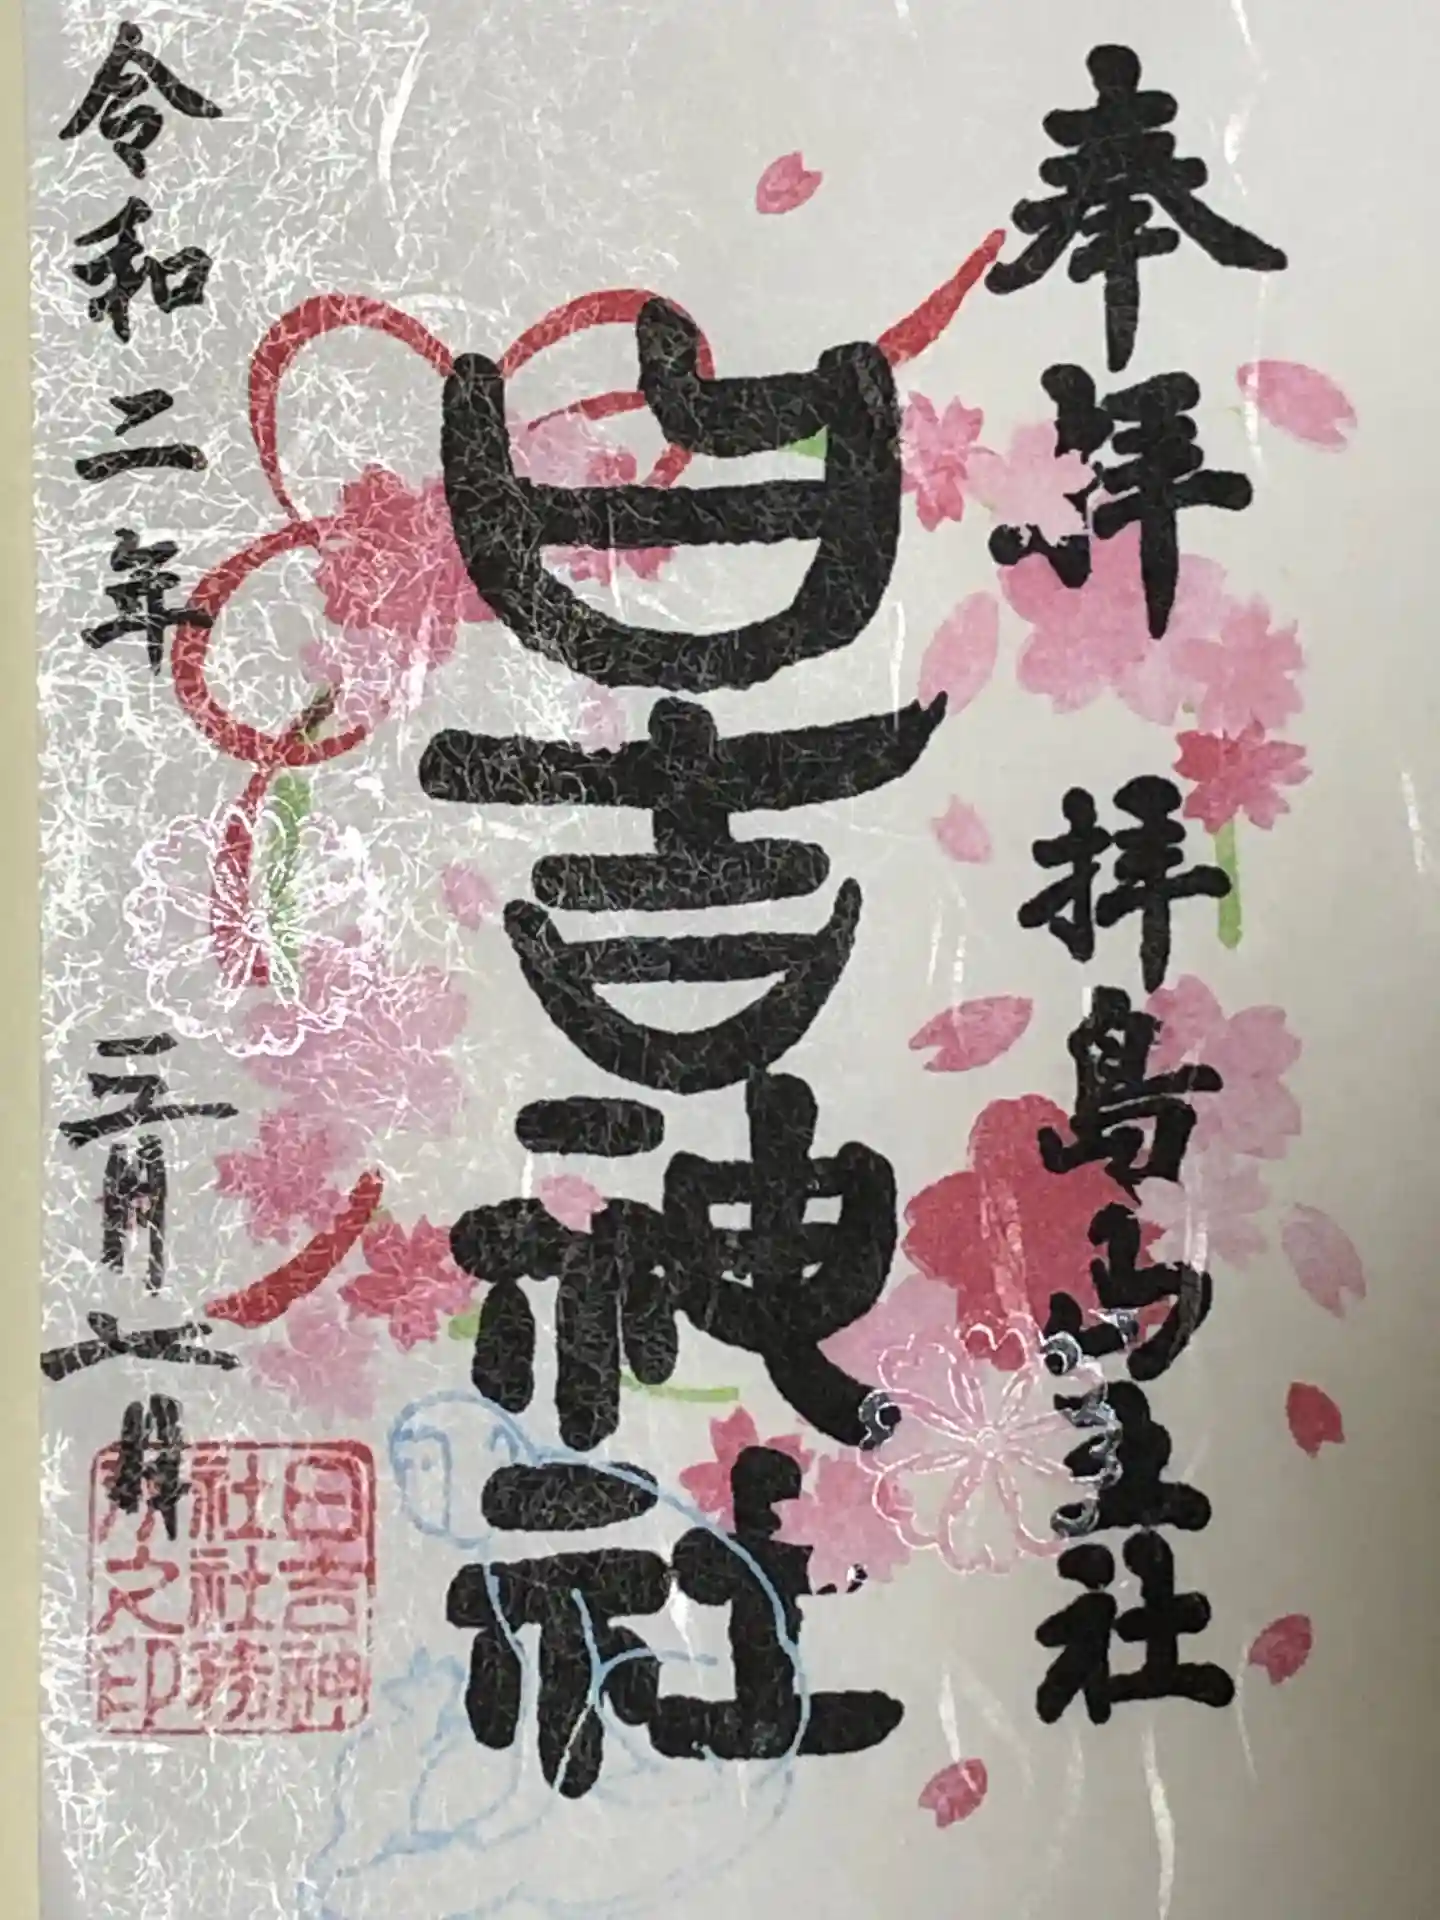 奉拝
拝島山王社
日吉神社
令和二年
三月六日
日吉神
社社務
所之印